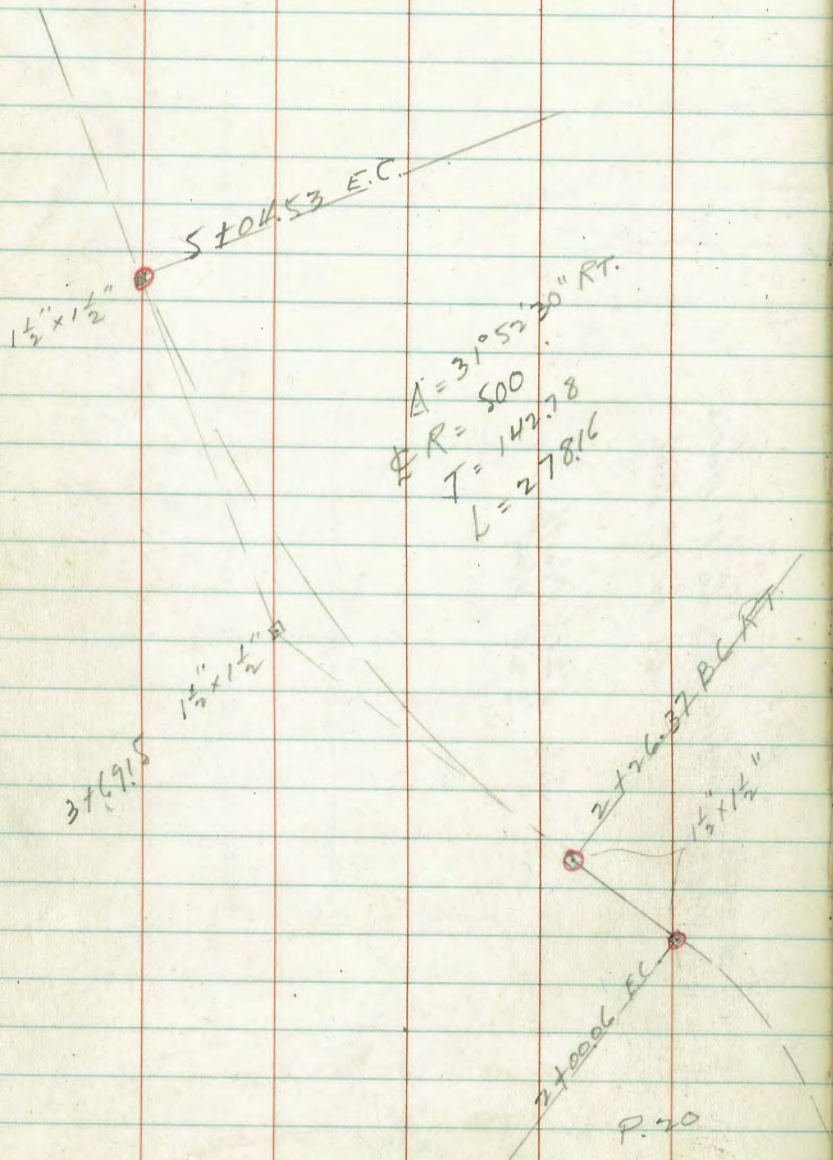 5+04.53 E.C.
1½" x 1½"
Δ = 31° 52' 30" RT.
℄ R = 500
T = 142.78
L = 278.16
1½" x 1½"
3+69.15
2+26.37 BC RT.
1½" x 1½"
2+00.06 EC.
P. 20